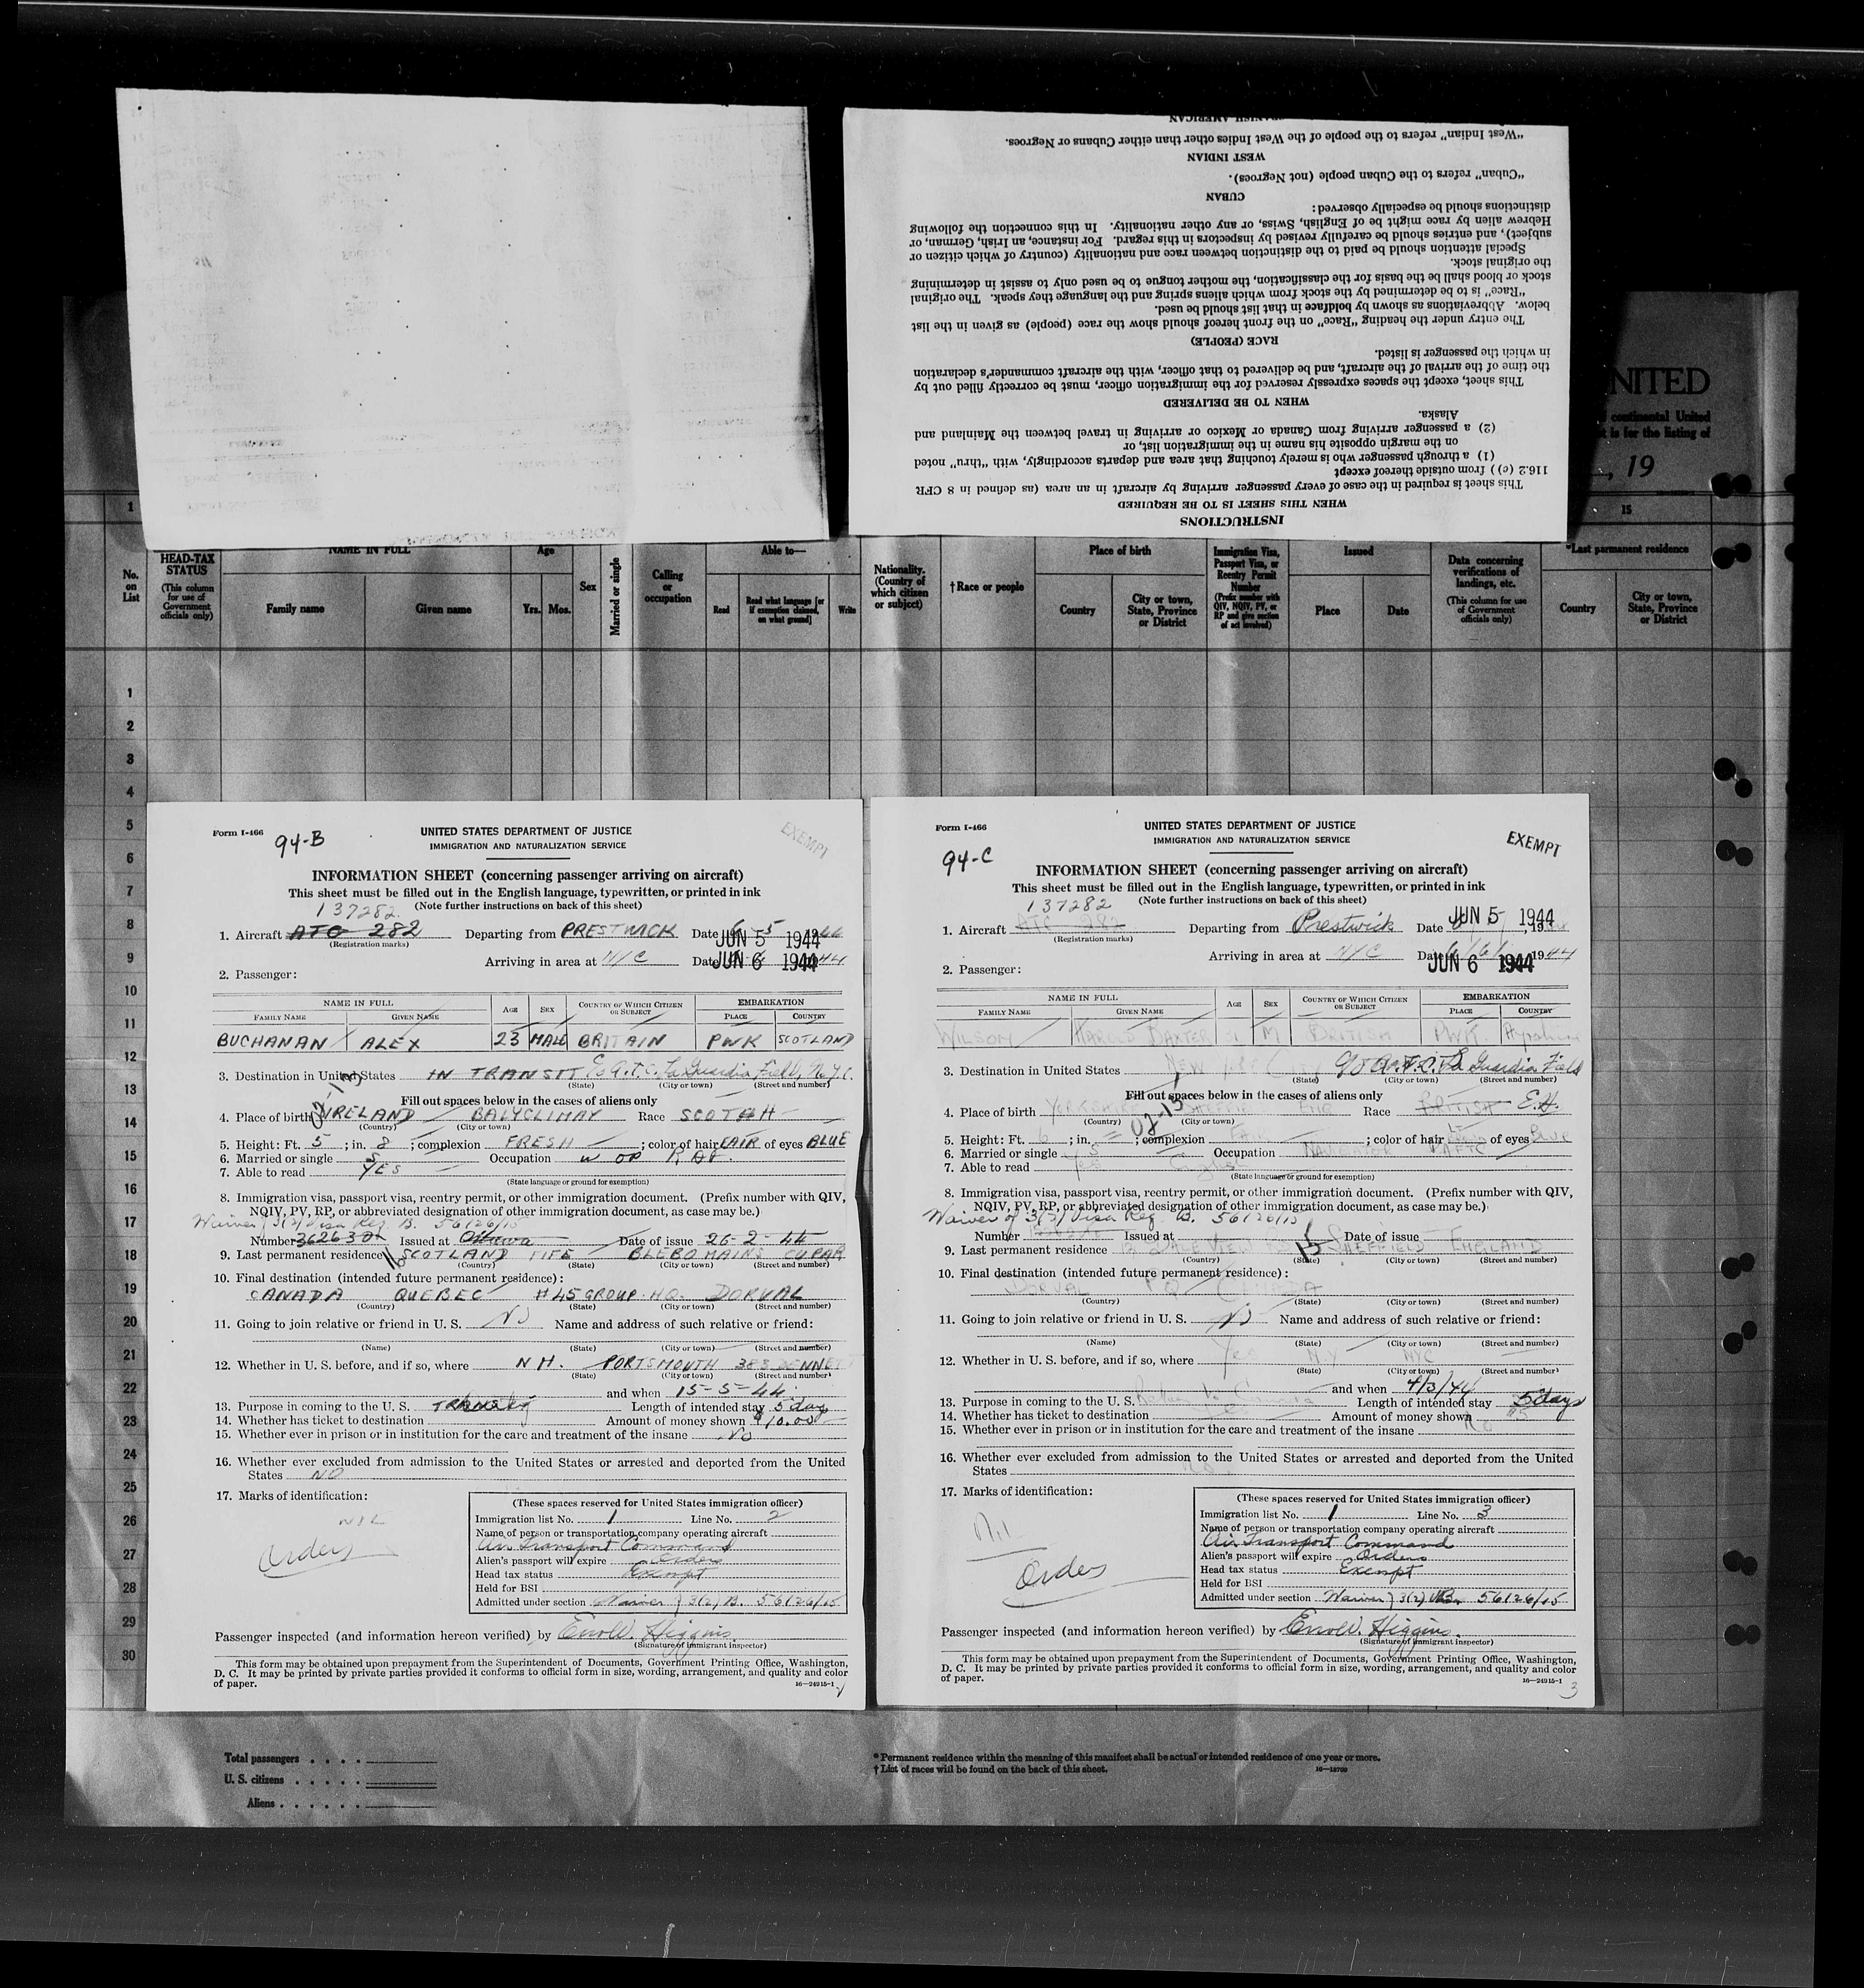 SPANISH AMERICAN
"West Indian" refers to the people of the West Indies other than either Cubans or Negroes.
WEST INDIAN
"Cuban" refers to the Cuban people (not Negroes).
CUBAN
distinctions should be especially observed:
Hebrew alien by race might be of English, Swiss, or any other nationality. In this connection the following
subject), and entries should be carefully revised by inspectors in this regard. For instance, an Irish, German, or
Special attention should be paid to the distinction between race and nationality (country of which citizen or
the original stock.
stock or blood shall be the basis for the classification, the mother tongue to be used only to assist in determining
"Race" is to be determined by the stock from which aliens spring and the language they speak. The original
below. Abbreviations as shown by boldface in that list should be used.
The entry under the heading "Race" on the front hereof should show the race (people) as given in the list
RACE (PEOPLE)
in which the passenger is listed.
the time of the arrival of the aircraft, and be delivered to that officer, with the aircraft commander's declaration
This sheet, except the spaces expressly reserved for the immigration officer, must be correctly filled out by
WHEN TO BE DELIVERED
Alaska.
(2) a passenger arriving from Canada or Mexico or arriving in travel between the Mainland and
on the margin opposite his name in the immigration list, or
(1) a through passenger who is merely touching that area and departs accordingly, with "thru" noted
116.2 (c) ) from outside thereof except
This sheet is required in the case of every passenger arriving by aircraft in an area (as defined in 8 CFR
WHEN THIS SHEET IS TO BE REQUIRED
INSTRUCTIONS
NITED
continental United
is for the listing of
, 19
1
15
No. on List
HEAD-TAX STATUS
(This column for use of Government officials only)
NAME IN FULL
Family name
Given name
Age
Yrs. Mos.
Sex
Married or single
Calling or occupation
Able to—
Read
Read what language [or if exemption claimed, on what ground]
Write
Nationality. (Country of which citizen or subject)
† Race or people
Place of birth
Country
City or town, State, Province or District
Immigration Visa, Passport Visa, or Reentry Permit Number
(Prefix number with QIV, NQIV, PV, or RP and give section of act involved)
Issued
Place
Date
Data concerning verifications of landings, etc.
(This column for use of Government officials only)
*Last permanent residence
Country
City or town, State, Province or District
1
2
3
4
5
6
7
8
9
10
11
12
13
14
15
16
17
18
19
20
21
22
23
24
25
26
27
28
29
30
Form I-466
94-B
UNITED STATES DEPARTMENT OF JUSTICE
IMMIGRATION AND NATURALIZATION SERVICE
EXEMPT
INFORMATION SHEET (concerning passenger arriving on aircraft)
This sheet must be filled out in the English language, typewritten, or printed in ink
137282 (Note further instructions on back of this sheet)
1. Aircraft ATC 282 Departing from PRESTWICK Date JUN 5 1944
(Registration marks)
Arriving in area at NYC Date JUN 6 1944
2. Passenger:
NAME IN FULL AGE SEX COUNTRY OF WHICH CITIZEN OR SUBJECT EMBARKATION
FAMILY NAME GIVEN NAME PLACE COUNTRY
BUCHANAN ALEX 23 MALE BRITAIN PWK SCOTLAND
3. Destination in United States IN TRANSIT A.T.C. LaGuardia Field, N.Y.C.
(State) (City or town) (Street and number)
Fill out spaces below in the cases of aliens only
4. Place of birth IRELAND BALYCLIMAY Race SCOTCH
(Country) (City or town)
5. Height: Ft. 5; in. 8; complexion FRESH; color of hair FAIR of eyes BLUE
6. Married or single S Occupation W OP RAF.
7. Able to read YES
(State language or ground for exemption)
8. Immigration visa, passport visa, reentry permit, or other immigration document. (Prefix number with QIV,
NQIV, PV, RP, or abbreviated designation of other immigration document, as case may be.)
Waiver 3(2) Visa Reg. B. 56126/15
Number Issued at Ottawa Date of issue 26-2-44
9. Last permanent residence SCOTLAND FIFE BLEBO MAINS CUPAR
(Country) (State) (City or town) (Street and number)
10. Final destination (intended future permanent residence):
CANADA QUEBEC #45 GROUP. HQ. DORVAL
(Country) (State) (City or town) (Street and number)
11. Going to join relative or friend in U. S. NO Name and address of such relative or friend:
(Name) (State) (City or town) (Street and number)
12. Whether in U. S. before, and if so, where N H. PORTSMOUTH 383 DENNET
(State) (City or town) (Street and number)
and when 15-5-44.
13. Purpose in coming to the U. S. Length of intended stay 5 days
14. Whether has ticket to destination Amount of money shown $10.00
15. Whether ever in prison or in institution for the care and treatment of the insane No
16. Whether ever excluded from admission to the United States or arrested and deported from the United
States NO
17. Marks of identification:
NIL
Orders
(These spaces reserved for United States immigration officer)
Immigration list No. 1 Line No. 2
Name of person or transportation company operating aircraft
Air Transport Command
Alien's passport will expire Orders
Head tax status Exempt
Held for BSI
Admitted under section Waiver 3(2) B. 56126/15
Passenger inspected (and information hereon verified) by Errol W. Higgins.
(Signature of immigrant inspector)
This form may be obtained upon prepayment from the Superintendent of Documents, Government Printing Office, Washington,
D. C. It may be printed by private parties provided it conforms to official form in size, wording, arrangement, and quality and color
of paper. 16—24915-1
Form I-466
94-C
UNITED STATES DEPARTMENT OF JUSTICE
IMMIGRATION AND NATURALIZATION SERVICE
EXEMPT
INFORMATION SHEET (concerning passenger arriving on aircraft)
This sheet must be filled out in the English language, typewritten, or printed in ink
137282 (Note further instructions on back of this sheet)
1. Aircraft ATC 282 Departing from Prestwick Date JUN 5 1944
(Registration marks)
Arriving in area at NYC Date JUN 6 1944
2. Passenger:
NAME IN FULL AGE SEX COUNTRY OF WHICH CITIZEN OR SUBJECT EMBARKATION
FAMILY NAME GIVEN NAME PLACE COUNTRY
WILSON HAROLD BAXTER M BRITISH PWK
3. Destination in United States NEW YORK A.T.C. La Guardia Field
(State) (City or town) (Street and number)
Fill out spaces below in the cases of aliens only
4. Place of birth YORKSHIRE SHEFFIELD ENG Race BRITISH E.H.
(Country) (City or town)
5. Height: Ft. 6; in. ; complexion FAIR; color of hair of eyes Blue
6. Married or single S Occupation NAVIGATOR RAFTC
7. Able to read Yes English
(State language or ground for exemption)
8. Immigration visa, passport visa, reentry permit, or other immigration document. (Prefix number with QIV,
NQIV, PV, RP, or abbreviated designation of other immigration document, as case may be.)
Waiver of 3(2) Visa Reg. B. 56126/15
Number Issued at Date of issue
9. Last permanent residence SHEFFIELD ENGLAND
(Country) (State) (City or town) (Street and number)
10. Final destination (intended future permanent residence):
DORVAL P.Q. CANADA
(Country) (State) (City or town) (Street and number)
11. Going to join relative or friend in U. S. NO Name and address of such relative or friend:
(Name) (State) (City or town) (Street and number)
12. Whether in U. S. before, and if so, where Yes N.Y. NYC
(State) (City or town) (Street and number)
and when 4/3/44
13. Purpose in coming to the U. S. Return to Canada Length of intended stay 5 days
14. Whether has ticket to destination Amount of money shown
15. Whether ever in prison or in institution for the care and treatment of the insane No
16. Whether ever excluded from admission to the United States or arrested and deported from the United
States No
17. Marks of identification:
Nil
Orders
(These spaces reserved for United States immigration officer)
Immigration list No. 1 Line No. 3
Name of person or transportation company operating aircraft
Air Transport Command
Alien's passport will expire Orders
Head tax status Exempt
Held for BSI
Admitted under section Waiver 3(2) B. 56126/15
Passenger inspected (and information hereon verified) by Errol W. Higgins.
(Signature of immigrant inspector)
This form may be obtained upon prepayment from the Superintendent of Documents, Government Printing Office, Washington,
D. C. It may be printed by private parties provided it conforms to official form in size, wording, arrangement, and quality and color
of paper. 16—24915-1
3
Total passengers . . . .
U. S. citizens . . . . .
Aliens . . . . . .
* Permanent residence within the meaning of this manifest shall be actual or intended residence of one year or more.
† List of races will be found on the back of this sheet. 16—18700